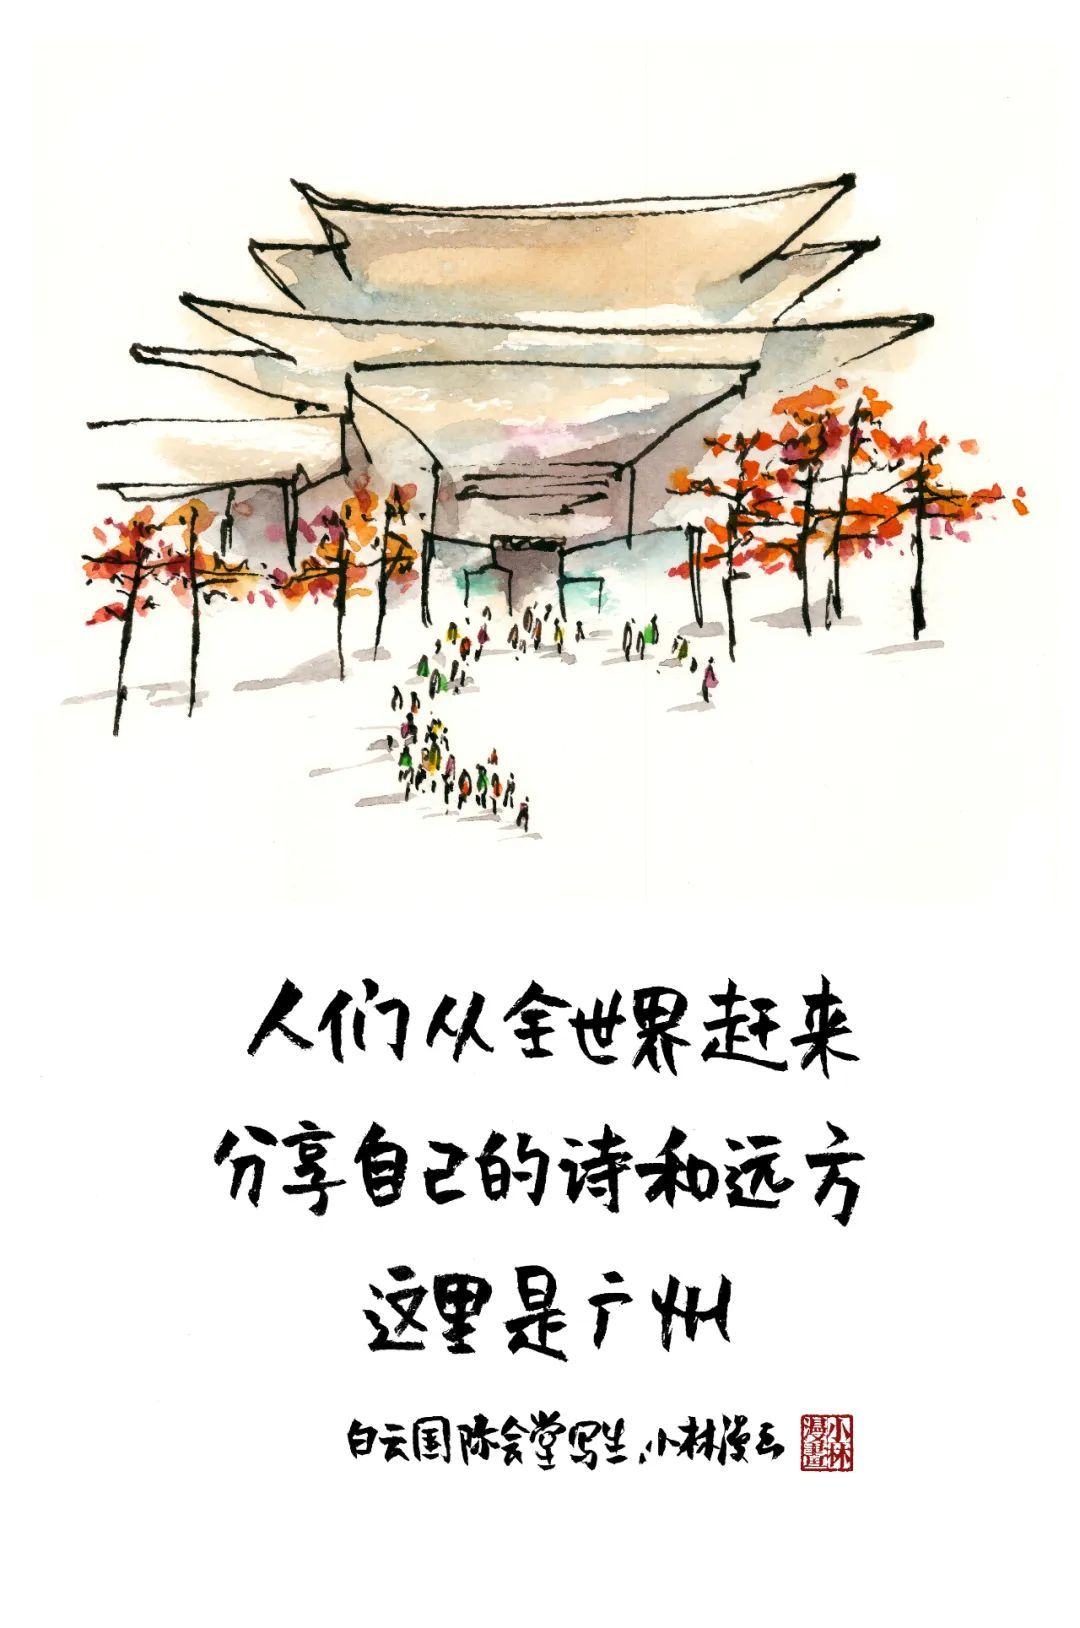 人们从全世界赶来
分享自己的诗和远方
这里是广州
白云国际会堂写生，小林漫画
小林漫畫